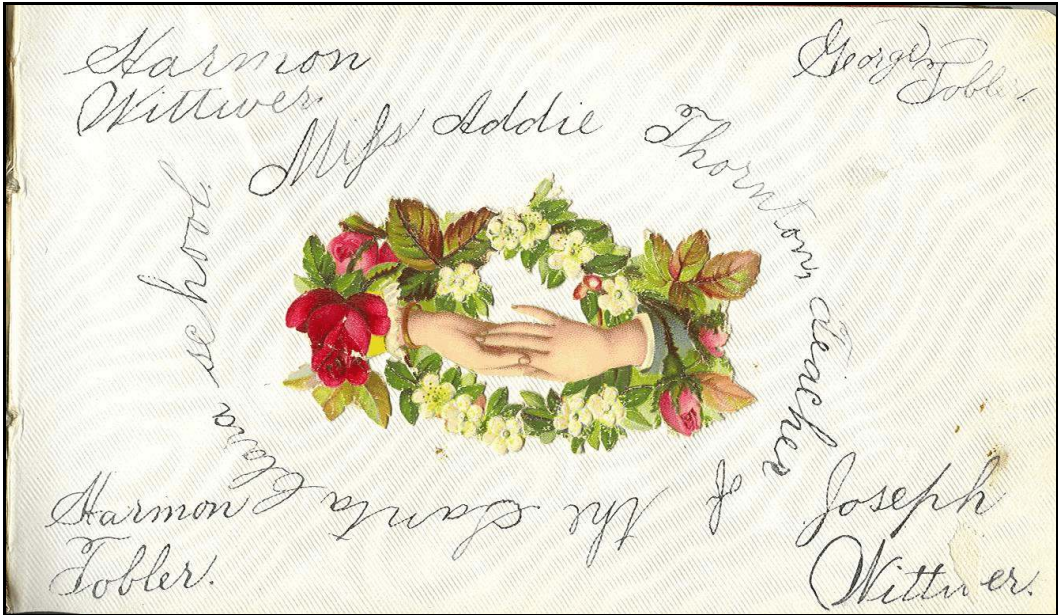 Harmon
Wittwer.
George
Tobler.
Miss Addie Thornton, teacher of the Santa Clara school.
Harmon
Tobler.
Joseph
Wittwer.